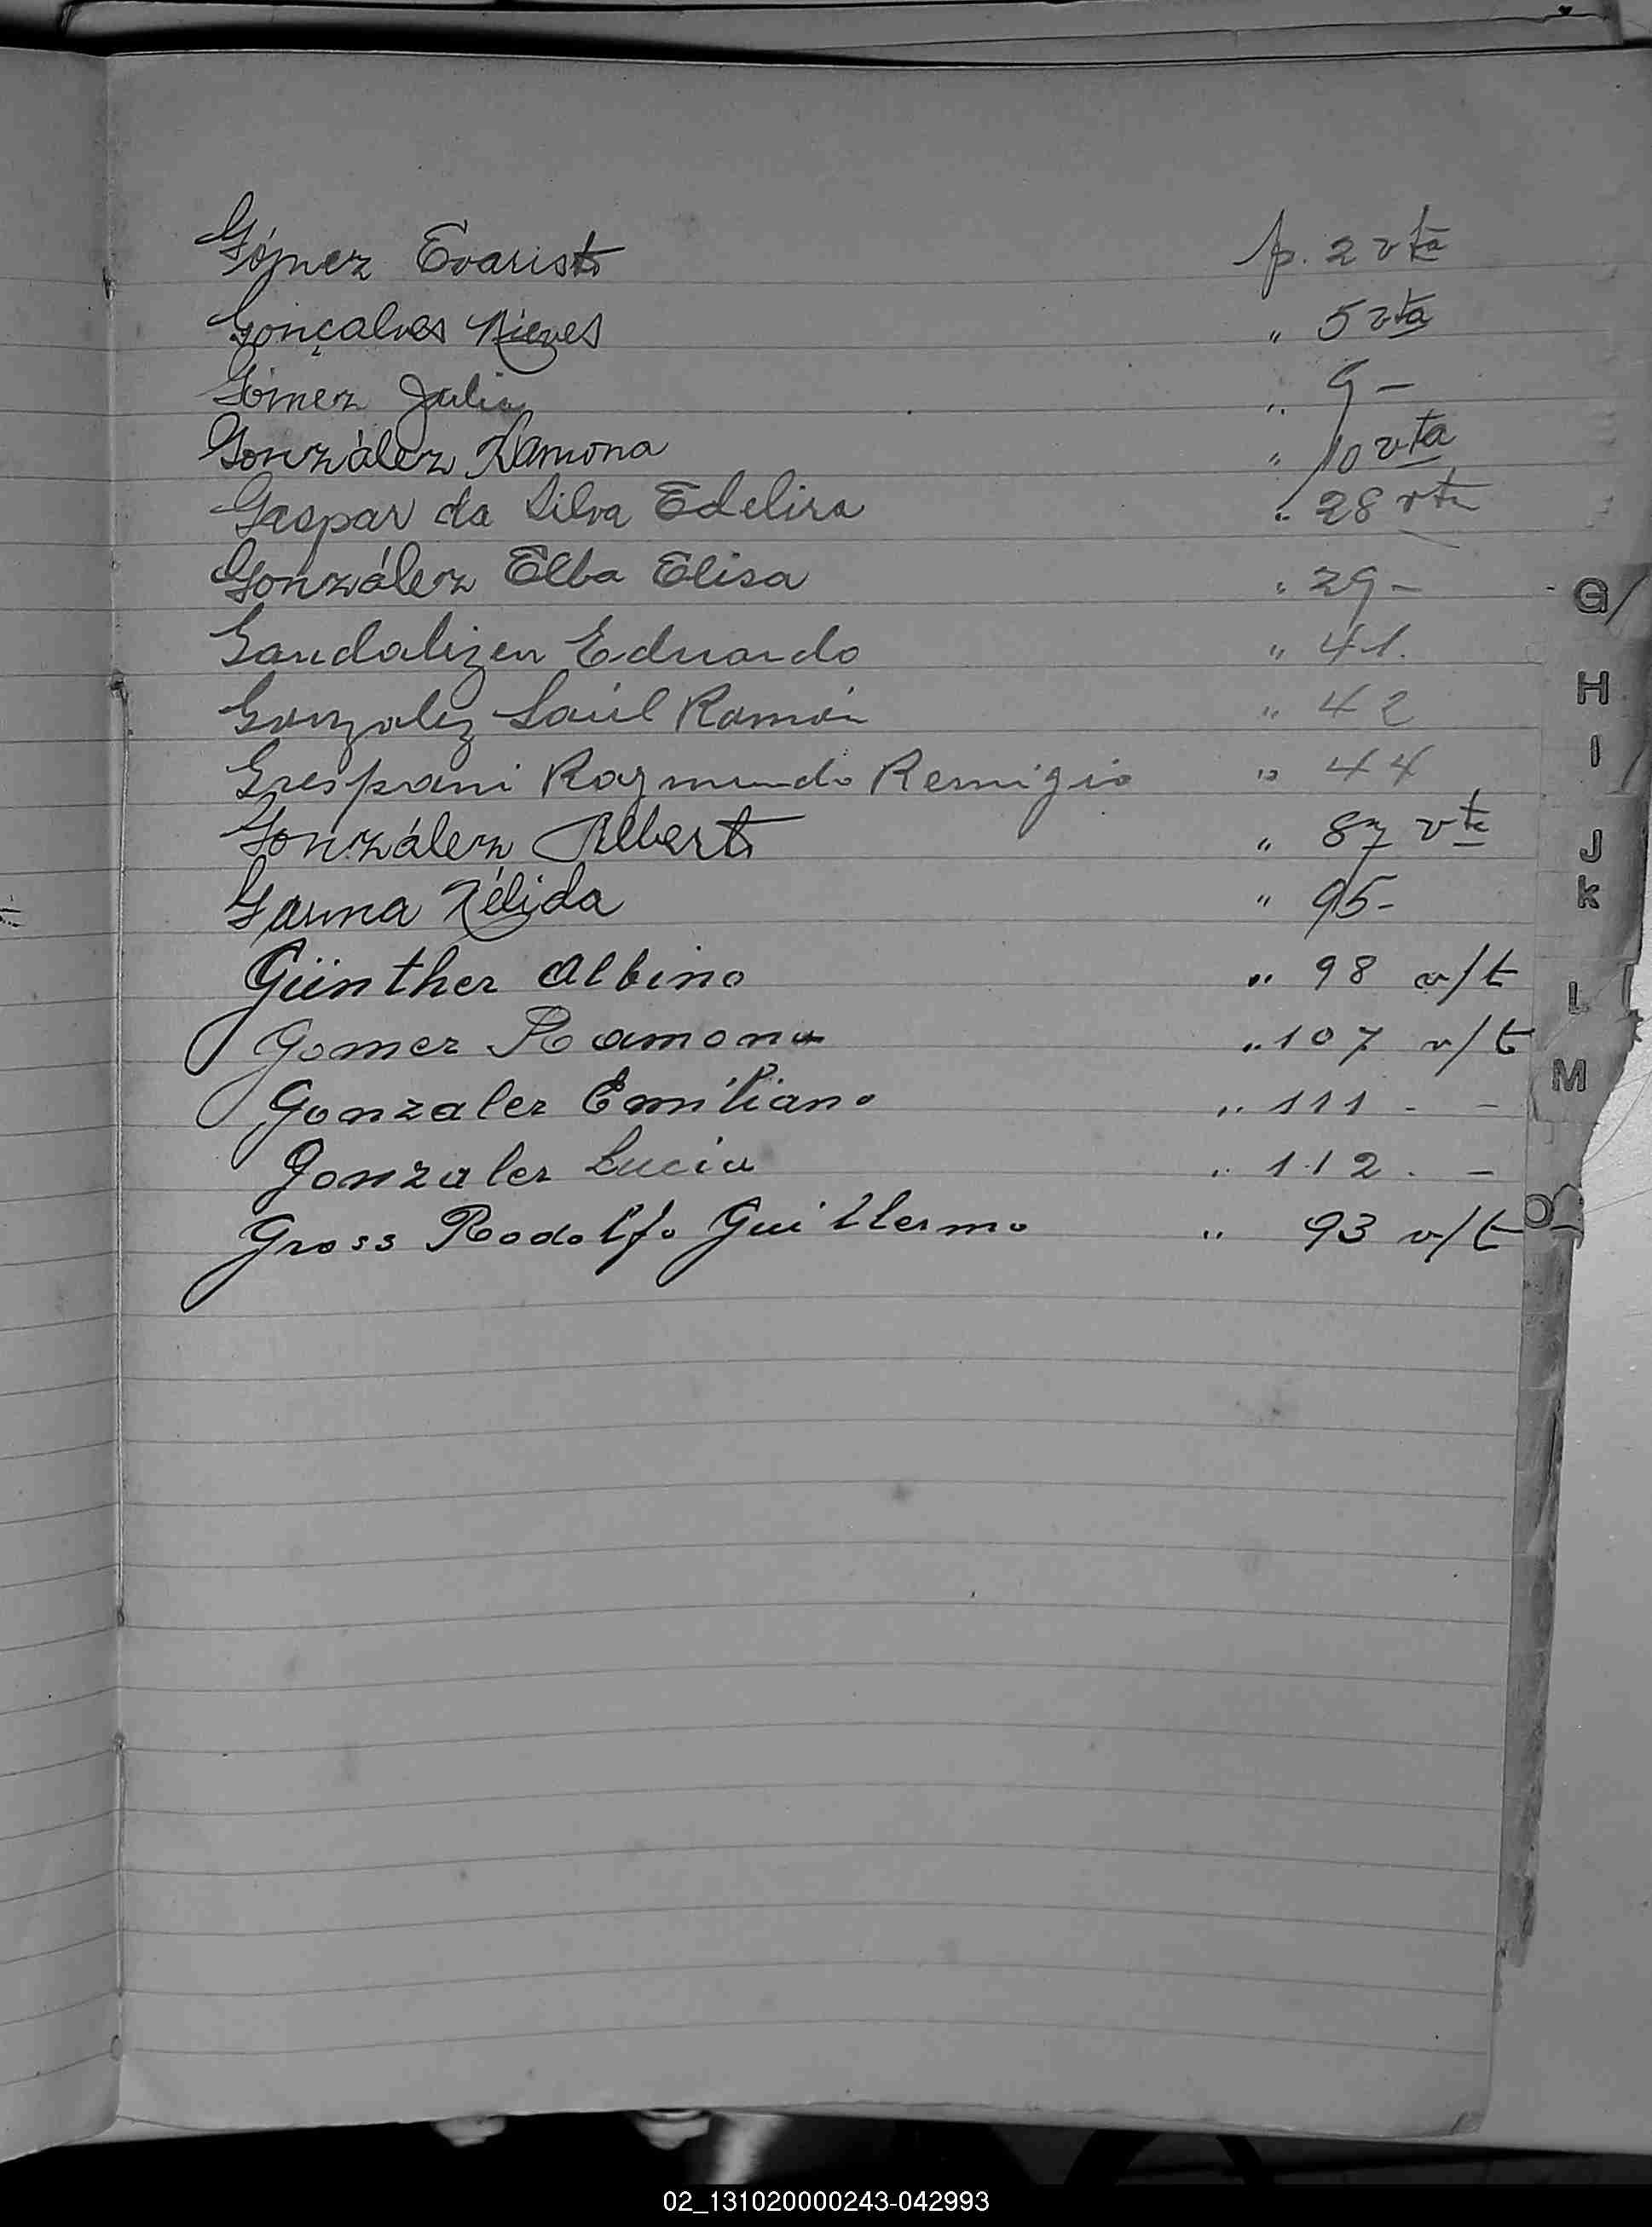 Gómez Evaristo p. 2 vta
Gonçalves Nieves " 5 vta
Gómez Julia " 9 -
González Ramona " 10 vta
Gaspar da Silva Edelira " 28 vta
González Elba Elisa " 29 -
Gandalizen Eduardo " 41.
Gonzalez Saúl Ramón " 42
Grespani Raymundo Remigio " 44
González Alberto " 87 vta
Garma Nélida " 95 -
Günther Albino " 98 v/t
Gomez Ramona " 107 v/t
Gonzalez Emiliano " 111 - -
Gonzalez Lucia " 112 . -
Gross Rodolfo Guillermo " 93 v/t
G
H
I
J
K
L
M
O
02_131020000243-042993